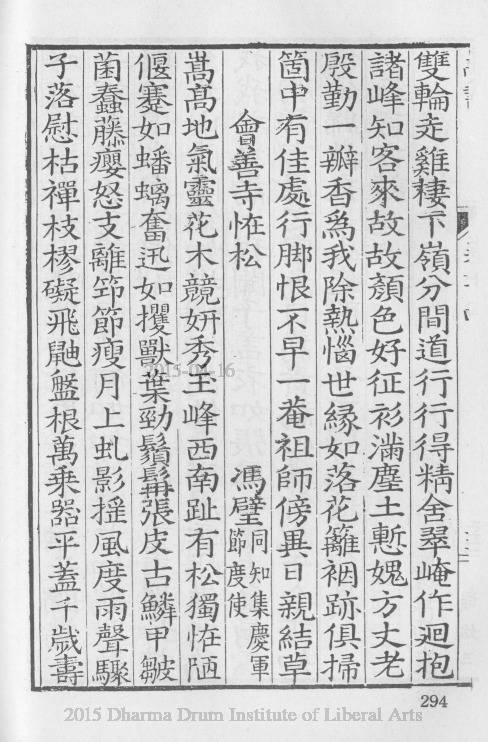 雙輪走雞棲下嶺分間道行行得精舍翠崦作迴抱
諸峰知客來故故顏色好征衫滿塵土慙媿方丈老
殷勤一瓣香爲我除熱惱世緣如落花籬裀跡俱掃
箇中有佳處行脚恨不早一菴祖師傍異日親結草
會善寺恠松 馮璧 同知集慶軍節度使
嵩高地氣靈花木競妍秀玉峰西南趾有松獨恠陋
偃蹇如蟠螭奮迅如攫獸葉勁鬚髯張皮古鱗甲皺
菌蠢藤癭怒支離筇節瘦月上虬影摇風度雨聲驟
子落慰枯禪枝樛礙飛鼬盤根萬乗器平蓋千歲壽
294
2015-04-16
2015 Dharma Drum Institute of Liberal Arts